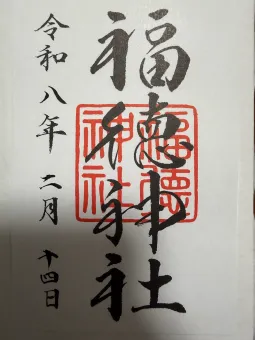 福徳神社
福徳
神社
令和八年 二月 十四日